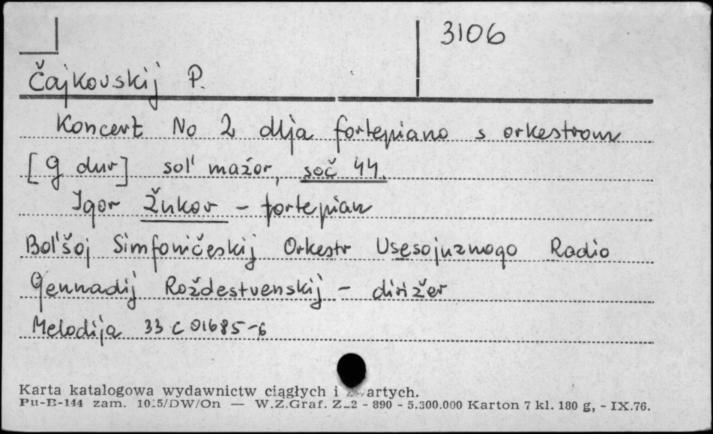 3106
Čajkovskij P.
Koncert No 2 dlja fortepiano s orkestrom
[g dur] sol' mažor, soč 44.
Igor Žukov - fortepian
Bol'šoj Simfoničeskij Orkestr Vsesojuznogo Radio
Gennadij Roždestvenskij - dirižer
Melodija 33 C 01685-6
Karta katalogowa wydawnictw ciągłych i zwartych.
Pu-B-144 zam. 1025/DW/On — W.Z.Graf. Z-2 - 890 - 5.300.000 Karton 7 kl. 180 g, - IX.76.